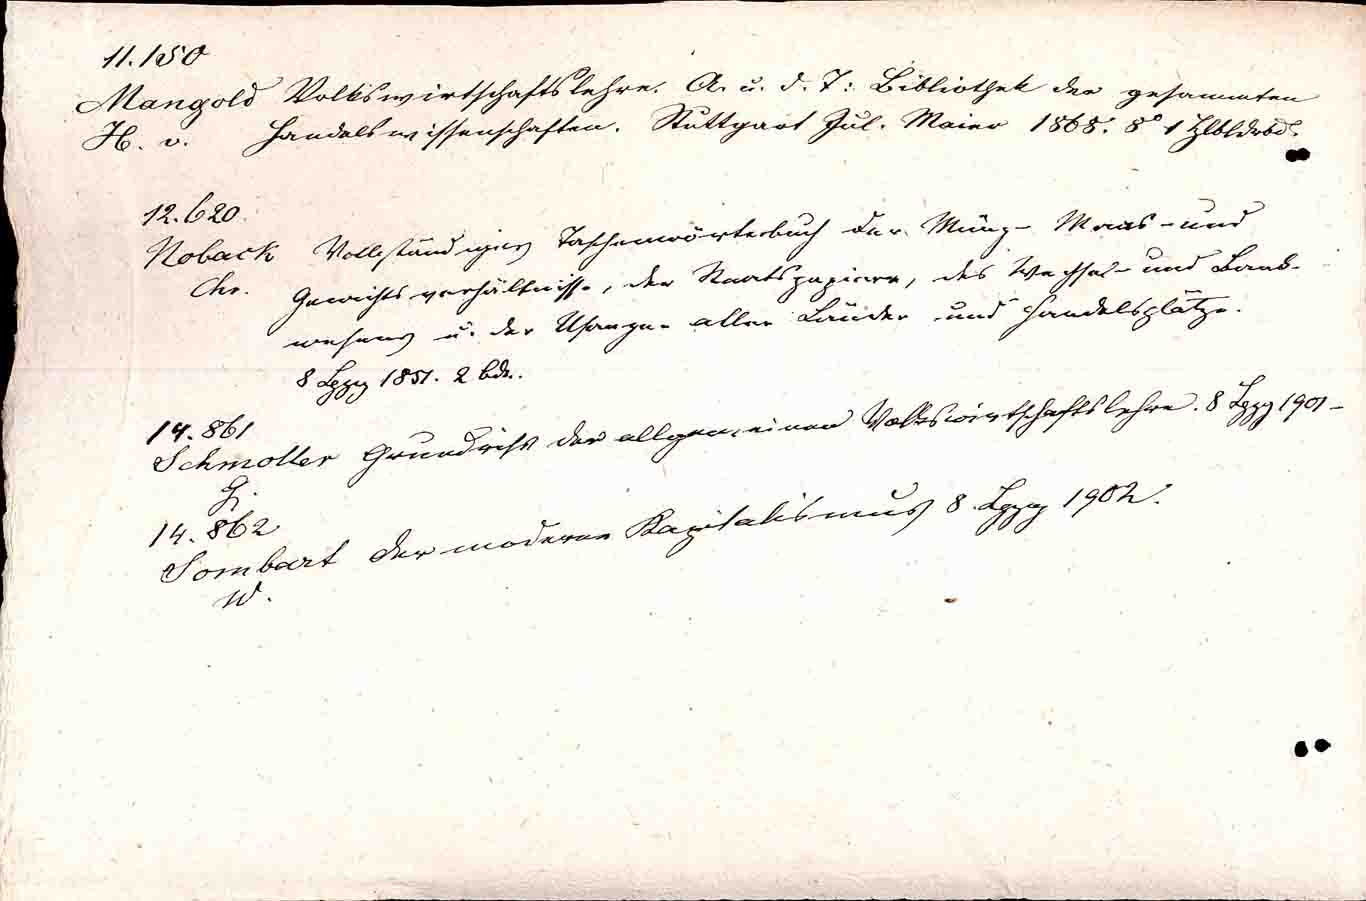 11.150
Mangold Volkswirtschaftslehre. A. u. d. T: Bibliothek der gesammten
H. v. Handelswissenschaften. Stuttgart Jul. Maier 1868. 8° 1 Hlbldrbd.
12.620
Noback Vollständiges Taschenwörterbuch der Münz- Maas- und
Chr. Gewichtsverhältnisse, der Staatspapiere, des Wechsel- und Bank-
wesens u. der Usanzen aller Länder und Handelsplätze.
8 Lpzg 1851. 2 bde.
14.861
Schmoller Grundriss der allgemeinen Volkswirtschaftslehre. 8 Lpzg 1901-
G.
14.862
Sombart Der moderne Kapitalismus 8 Lpzg 1902.
W.